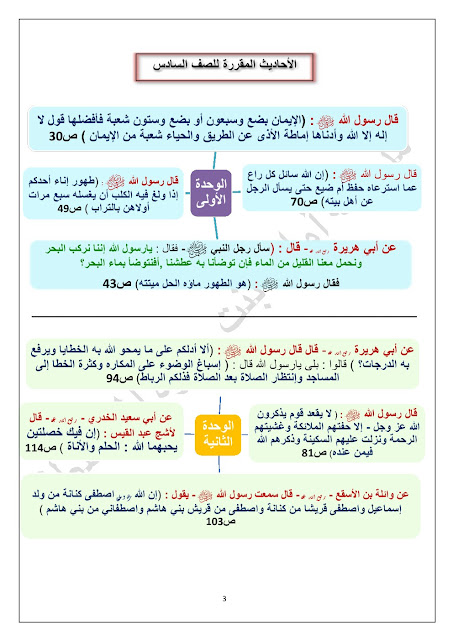 الأحاديث المقررة للصف السادس
قال رسول الله ﷺ : (الإيمان بضع وسبعون أو بضع وستون شعبة فأفضلها قول لا
إله إلا الله وأدناها إماطة الأذى عن الطريق والحياء شعبة من الإيمان ) ص30
قال رسول الله ﷺ : (إن الله سائل كل راع
عما استرعاه حفظ أم ضيع حتى يسأل الرجل
عن أهل بيته) ص70
الوحدة
الأولى
قال رسول الله ﷺ : (طهور إناء أحدكم
إذا ولغ فيه الكلب أن يغسله سبع مرات
أولاهن بالتراب ) ص49
عن أبي هريرة - قال : (سأل رجل النبي ﷺ - فقال : يارسول الله إننا نركب البحر
ونحمل معنا القليل من الماء فإن توضأنا به عطشنا ,أفنتوضأ بماء البحر؟
فقال رسول الله ﷺ : (هو الطهور ماؤه الحل ميتته) ص43
عن أبي هريرة - قال قال رسول الله ﷺ : (ألا أدلكم على ما يمحو الله به الخطايا ويرفع
به الدرجات؟ ) قالوا : بلى يارسول الله قال : ( إسباغ الوضوء على المكاره وكثرة الخطا إلى
المساجد وإنتظار الصلاة بعد الصلاة فذلكم الرباط) ص94
قال رسول الله ﷺ : ( لا يقعد قوم يذكرون
الله عز وجل - إلا حفتهم الملائكة وغشيتهم
الرحمة ونزلت عليهم السكينة وذكرهم الله
فيمن عنده) ص81
الوحدة
الثانية
عن أبي سعيد الخدري - قال
لأشج عبد القيس : (إن فيك خصلتين
يحبهما الله : الحلم والأناة ) ص114
عن واثلة بن الأسقع - قال سمعت رسول الله ﷺ - يقول : (إن الله اصطفى كنانة من ولد
إسماعيل واصطفى قريشا من كنانة واصطفى من قريش بني هاشم واصطفاني من بني هاشم )
ص103
3